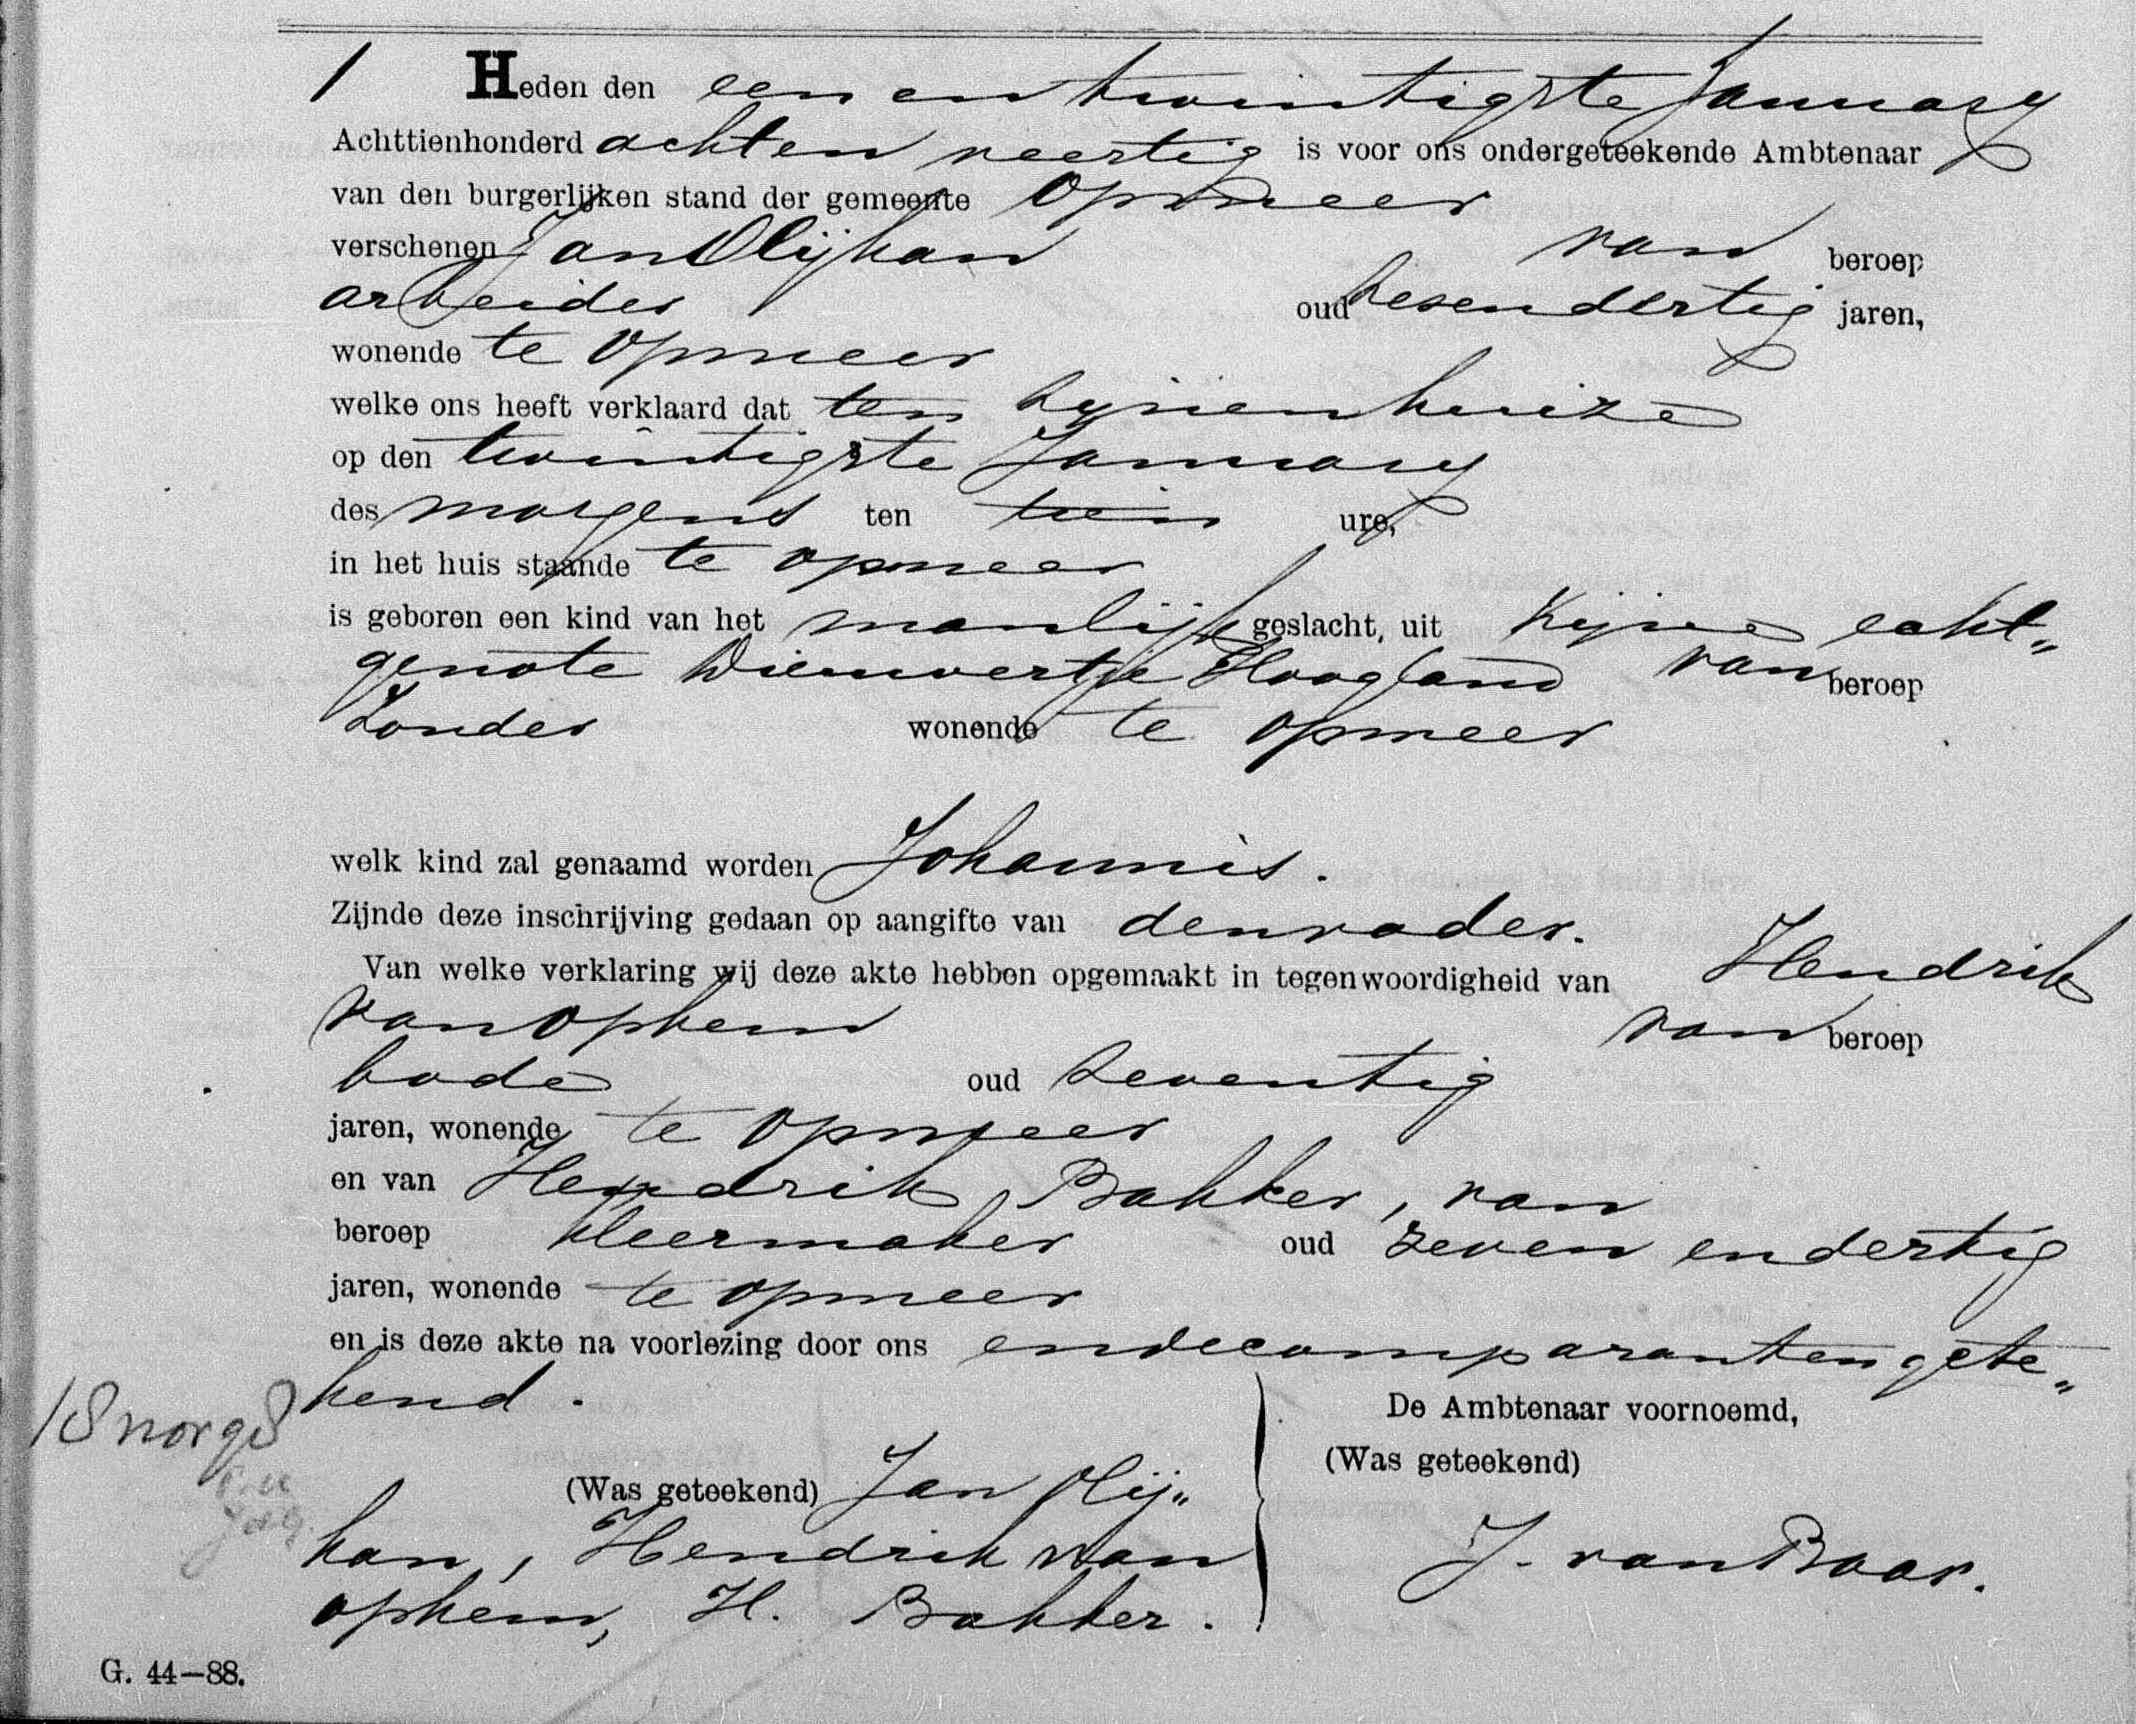 1 Heden den een en twintigste January
Achttienhonderd acht en veertig is voor ons ondergeteekende Ambtenaar
van den burgerlijken stand der gemeente Opmeer
verschenen Jan Olijkan van beroep
arbeider oud zesendertig jaren,
wonende te Opmeer
welke ons heeft verklaard dat ten zijnen huize
op den twintigste January
des morgens ten tien ure,
in het huis staande te Opmeer
is geboren een kind van het manlijk geslacht, uit zijne echt„
genote Dieuwertje Hoogland van beroep
zonder wonende te Opmeer
welk kind zal genaamd worden Johannis.
Zijnde deze inschrijving gedaan op aangifte van den vader.
Van welke verklaring wij deze akte hebben opgemaakt in tegenwoordigheid van Hendrik
van Ophem van beroep
bode oud zeventig
jaren, wonende te Opmeer
en van Hendrik Bakker, van
beroep kleermaker oud zeven en dertig
jaren, wonende te Opmeer
en is deze akte na voorlezing door ons en de comparanten gete„
kend.
De Ambtenaar voornoemd,
(Was geteekend)
(Was geteekend) Jan Olij„
kan, Hendrik van
Ophem, H. Bakker.
J. van Baar.
G. 44—88.